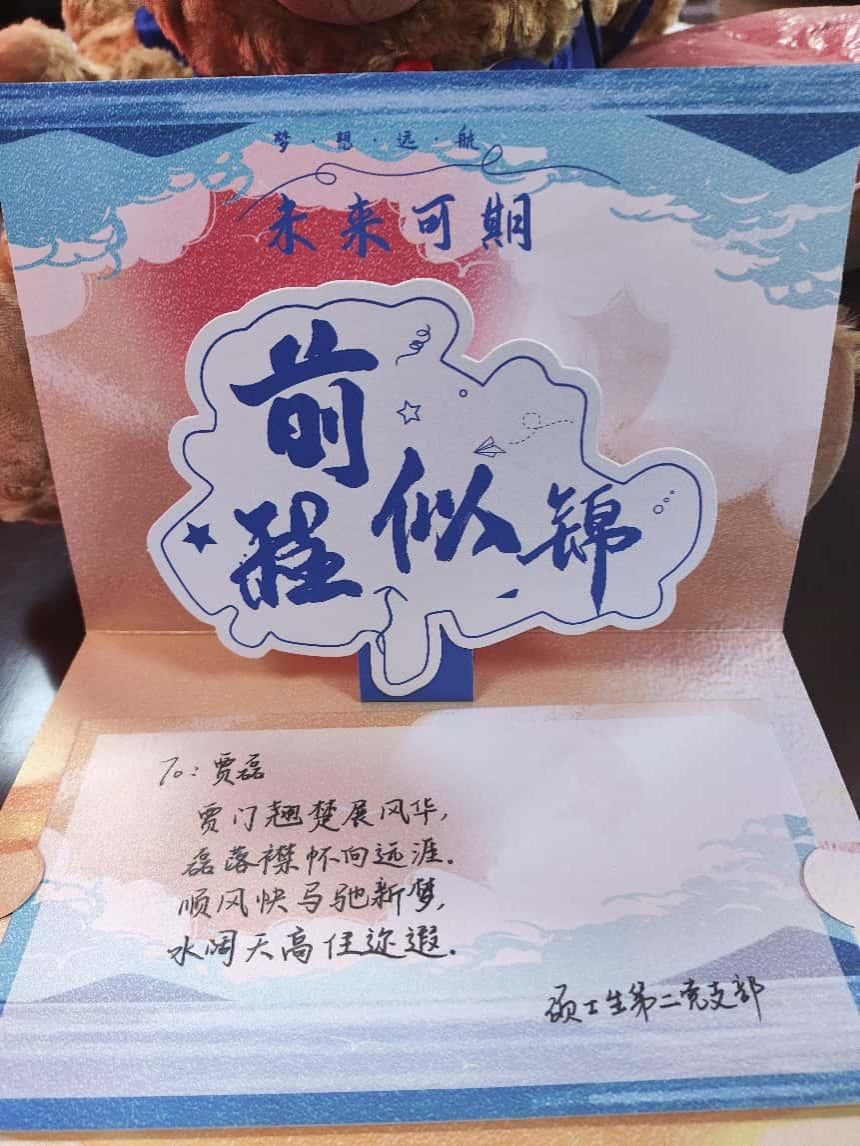 梦·想·远·航
未来可期
前
程似锦
To: 贾磊
贾门翘楚展风华,
磊落襟怀向远涯.
顺风快马驰新梦,
水阔天高任迩遐.
硕士生第二党支部